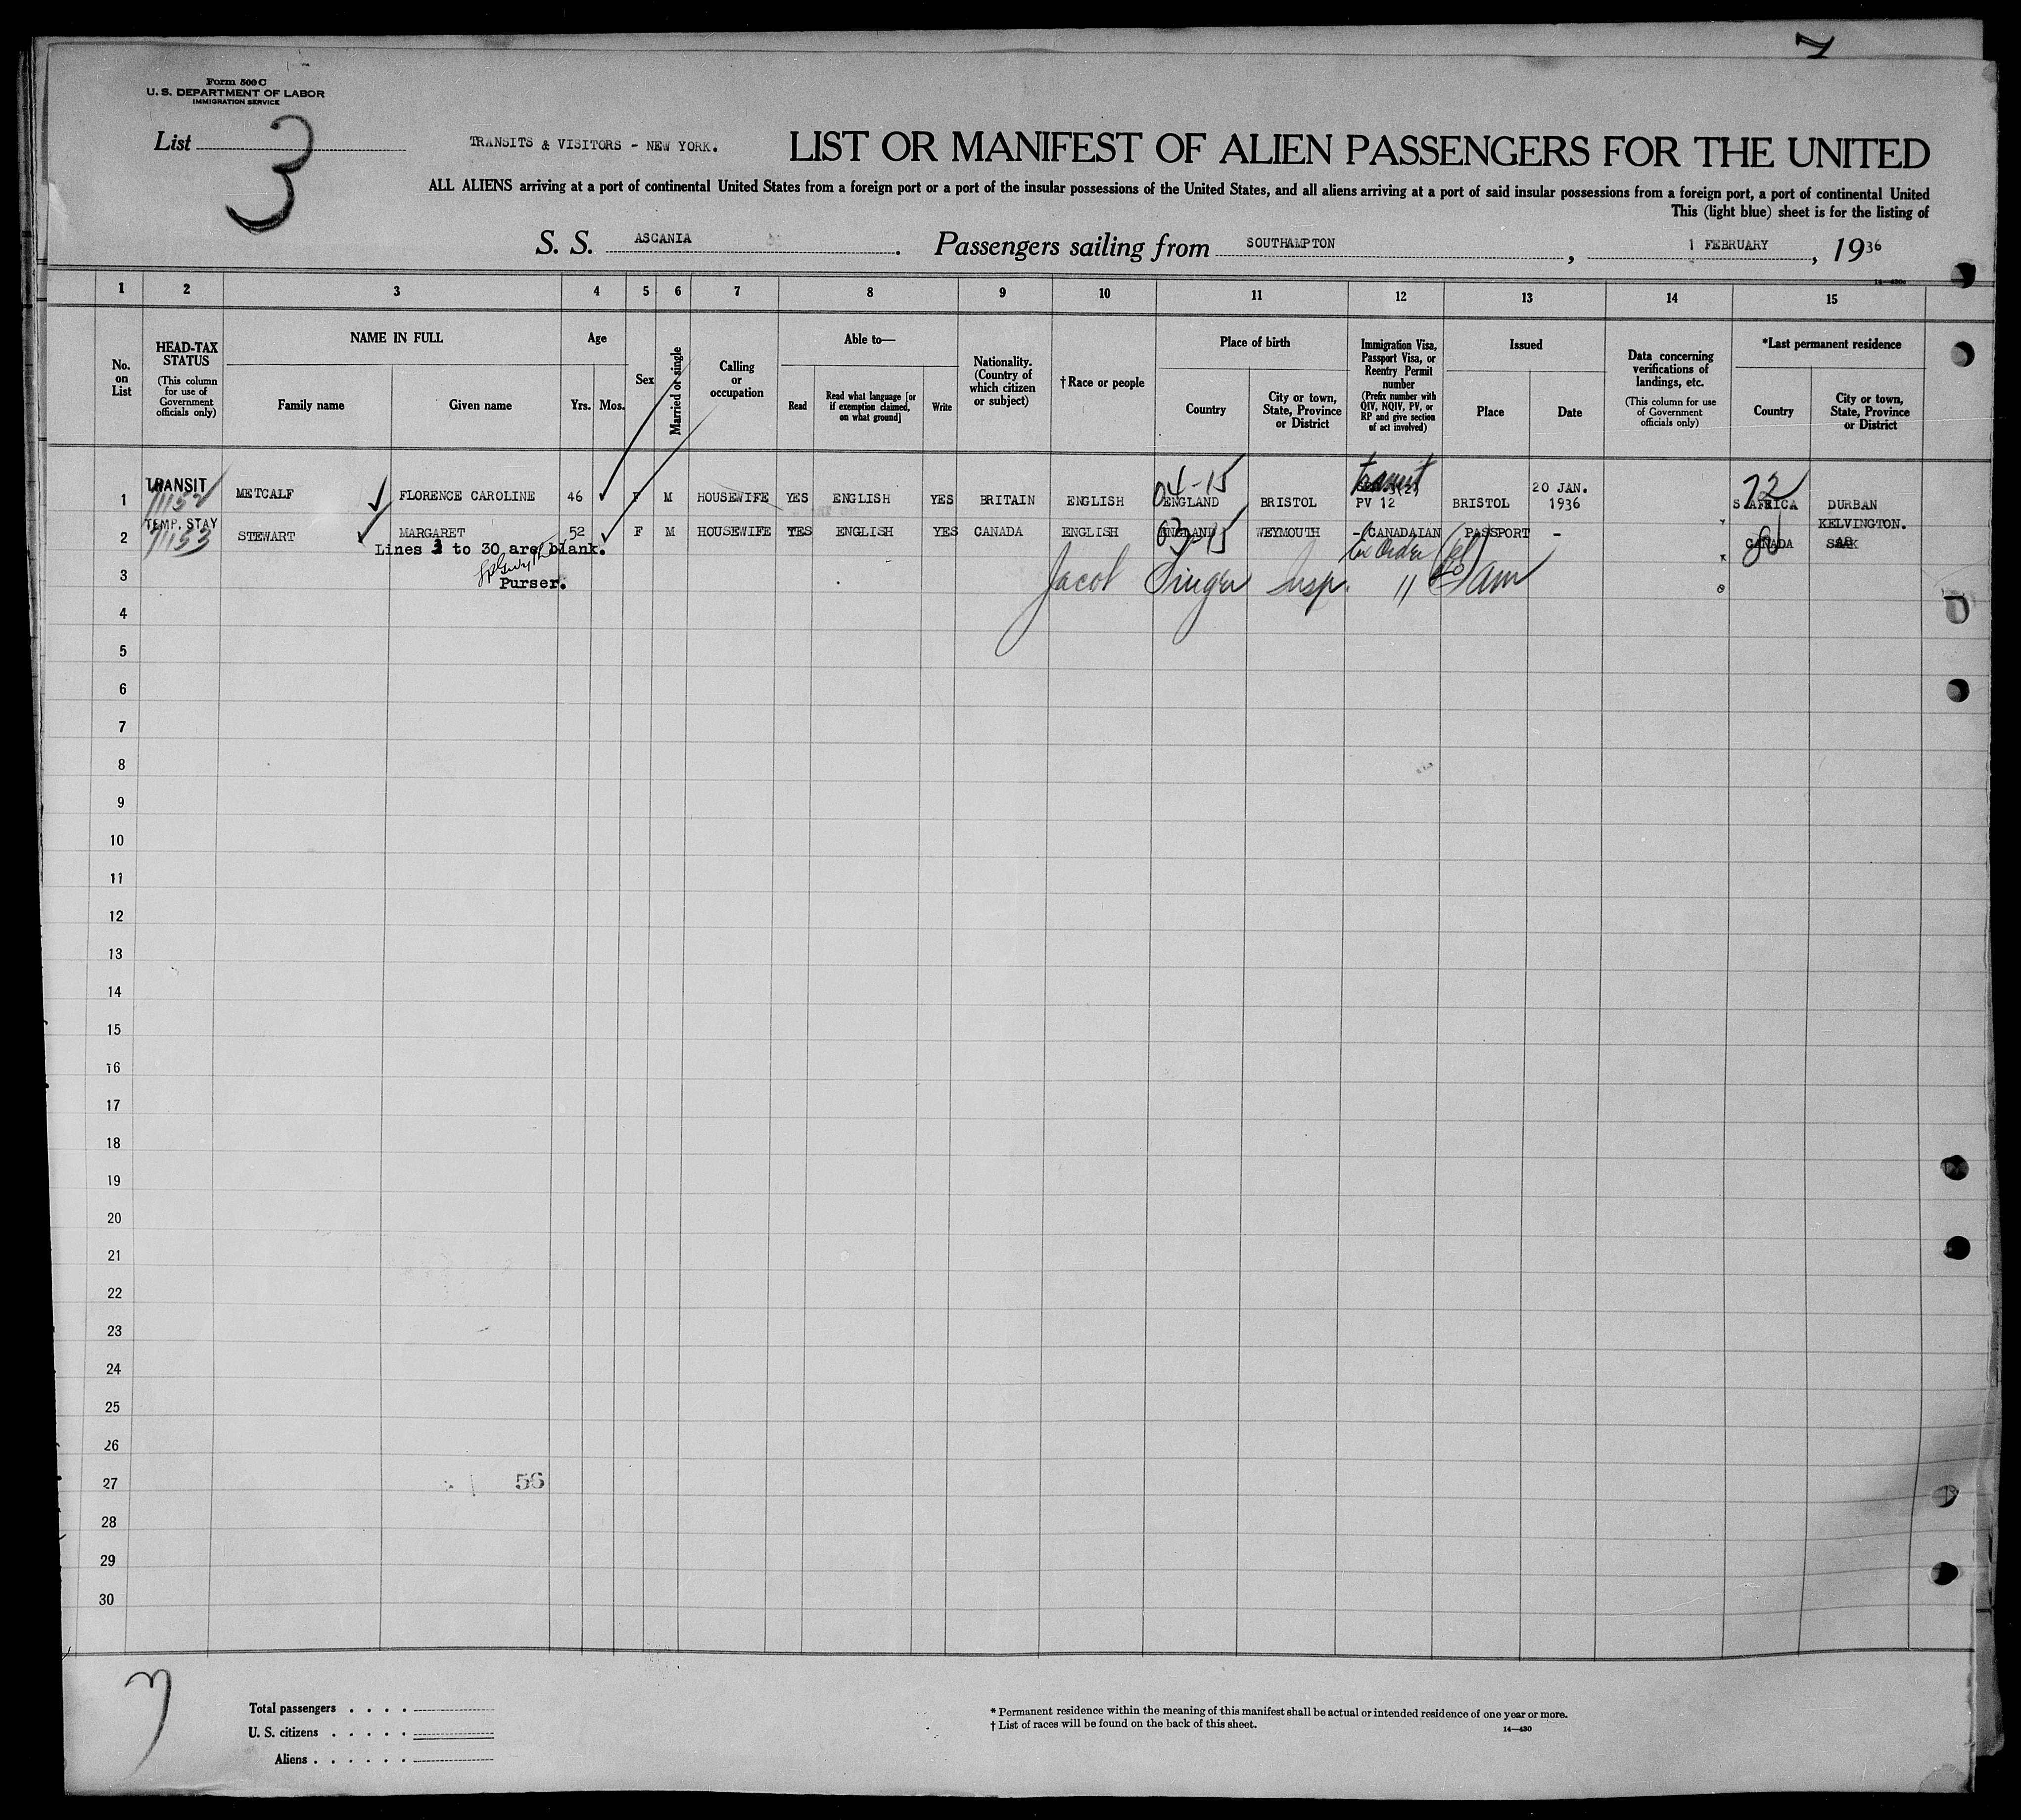 7
Form 500 C
U. S. DEPARTMENT OF LABOR
IMMIGRATION SERVICE
List 3
TRANSITS & VISITORS - NEW YORK.
LIST OR MANIFEST OF ALIEN PASSENGERS FOR THE UNITED
ALL ALIENS arriving at a port of continental United States from a foreign port or a port of the insular possessions of the United States, and all aliens arriving at a port of said insular possessions from a foreign port, a port of continental United
This (light blue) sheet is for the listing of
S. S. ASCANIA. Passengers sailing from SOUTHAMPTON, 1 FEBRUARY, 1936
14—430a
1 2 3 4 5 6 7 8 9 10 11 12 13 14 15
No. on List
HEAD-TAX STATUS (This column for use of Government officials only)
NAME IN FULL
Family name
Given name
Age
Yrs. Mos.
Sex
Married or single
Calling or occupation
Able to—
Read
Read what language [or if exemption claimed, on what ground]
Write
Nationality. (Country of which citizen or subject)
†Race or people
Place of birth
Country
City or town, State, Province or District
Immigration Visa, Passport Visa, or Reentry Permit number (Prefix number with QIV, NQIV, PV, or RP and give section of act involved)
Issued
Place
Date
Data concerning verifications of landings, etc. (This column for use of Government officials only)
*Last permanent residence
Country
City or town, State, Province or District
1 TRANSIT 71152 METCALF FLORENCE CAROLINE 46 F M HOUSEWIFE YES ENGLISH YES BRITAIN ENGLISH 04-15 ENGLAND BRISTOL Transit 3(2) PV 12 BRISTOL 20 JAN. 1936 72 S.AFRICA DURBAN
2 TEMP. STAY 71153 STEWART MARGARET 52 F M HOUSEWIFE YES ENGLISH YES CANADA ENGLISH 03-15 ENGLAND WEYMOUTH - CANADAIAN PASSPORT - CANADA KELVINGTON. SASK
Lines 3 to 30 are blank.
Purser.
3
Jacob Singer Insp. 11 am
4
5
6
7
8
9
10
11
12
13
14
15
16
17
18
19
20
21
22
23
24
25
26
27
56
28
29
30
7
Total passengers . . . .
U. S. citizens . . . . .
Aliens . . . . . .
* Permanent residence within the meaning of this manifest shall be actual or intended residence of one year or more.
† List of races will be found on the back of this sheet.
14—430